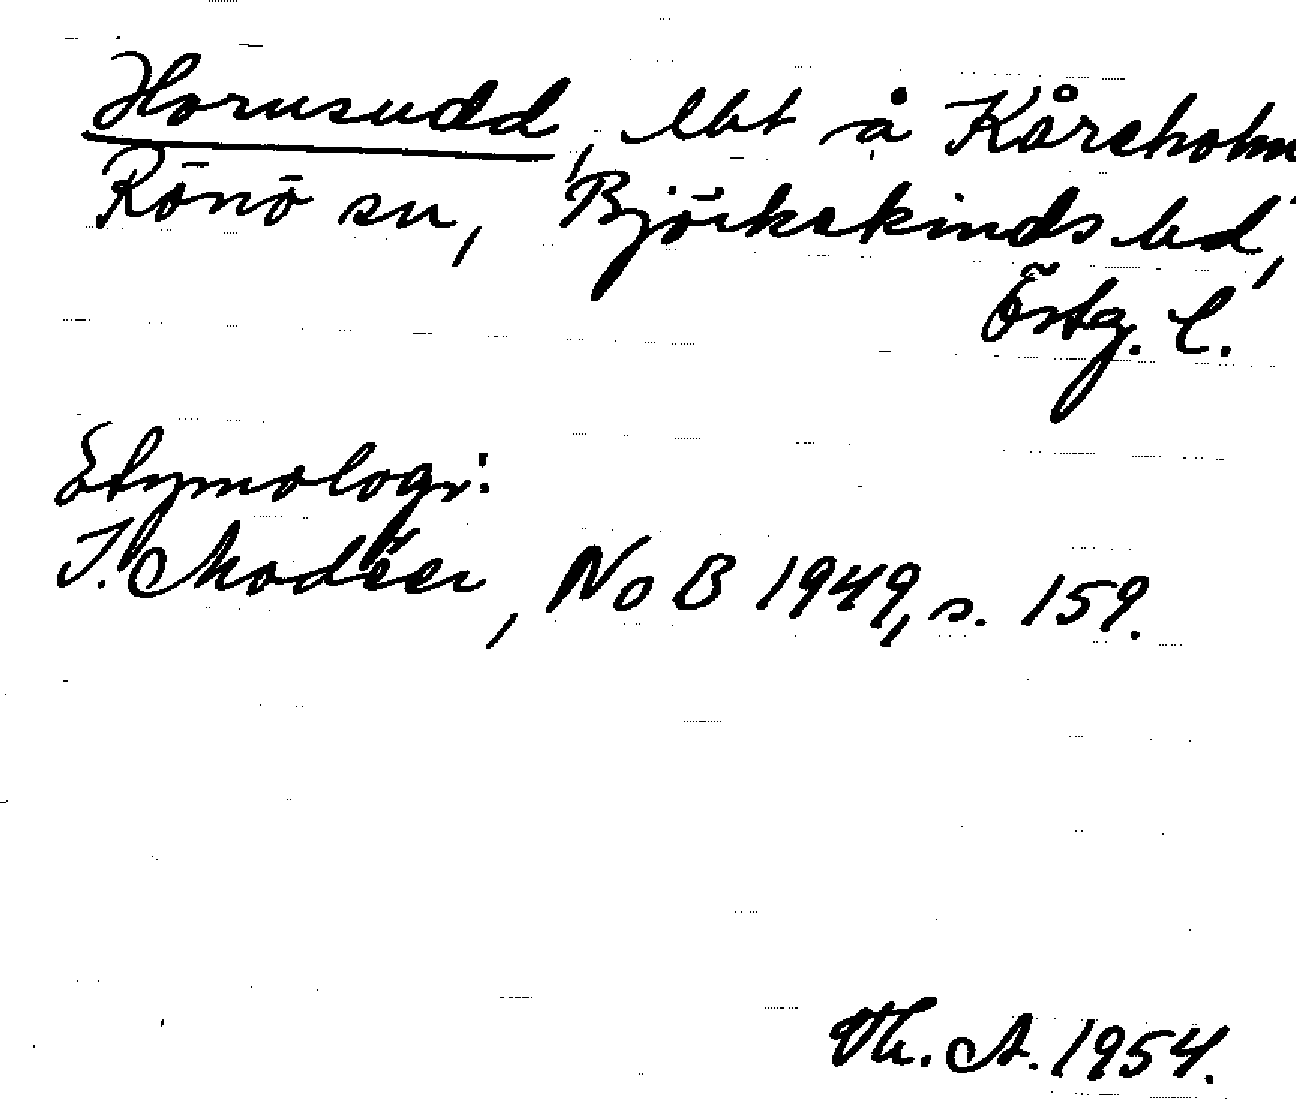 Hornsudd, lht å Kårsholm
Rönö sn, Björkekinds hd,
Östg. l.
Etymologi:
I. Modéer, NoB 1949, s. 159.
Th. A. 1954.